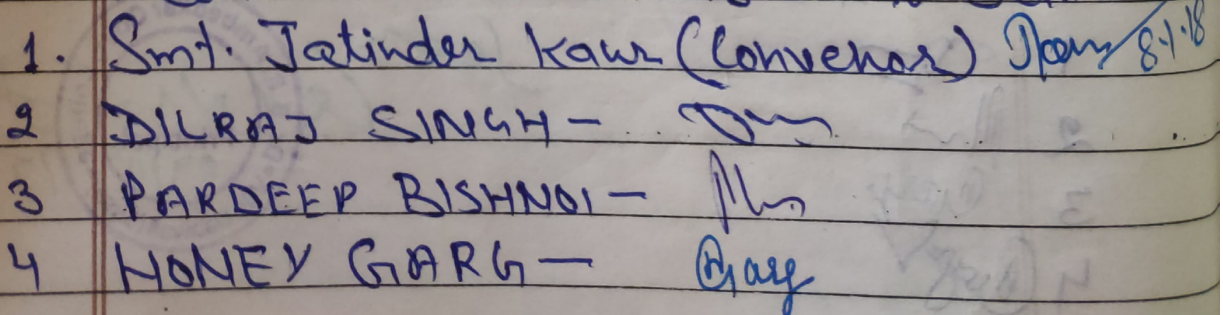 1. Smt. Jatinder Kaur (Convenor) 8.1.18
2 DILRAJ SINGH -
3 PARDEEP BISHNOI -
4 HONEY GARG - Garg